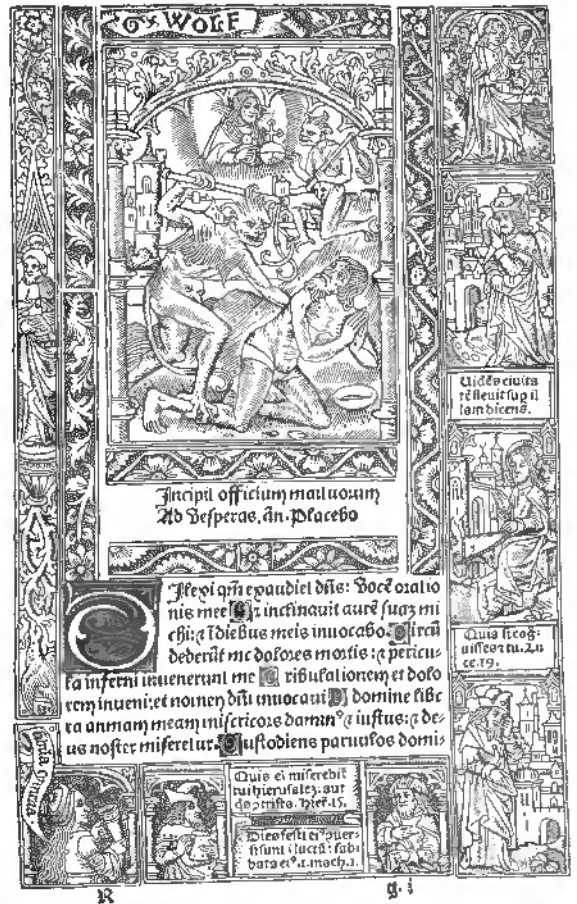 G. WOLF
Incipit officium mortuorum
Ad Vesperas. añ. Placebo
Ilexi qm̃ exaudiet dñs: Vocẽ oratio
nis mee Q̃z inclinauit aurẽ suaz mi
chi: ⁊ ĩ diebus meis inuocabo. Circũ
dederũt me dolores mortis: ⁊ pericu-
la inferni inuenerunt me Tribulationem et dolo
rem inueni: et nomen dñi inuocaui O domine libe
ra animam meam misericors dominꝰ ⁊ iustus: ⁊ de-
us noster miseretur. Custodiens paruulos domi-
Uidẽs ciuita
tẽ fleuit sup il
lam dicens.
Quia si cog-
uisses ⁊ tu. Lu
ce. 19.
Quis ei miserebit
tui hierusalez: aut
Hier. 15.
Dies festi eiꝰ ꝯuer-
si sunt ĩ luctũ: sab
bata eiꝰ. 1. mach. 1.
R
g. i